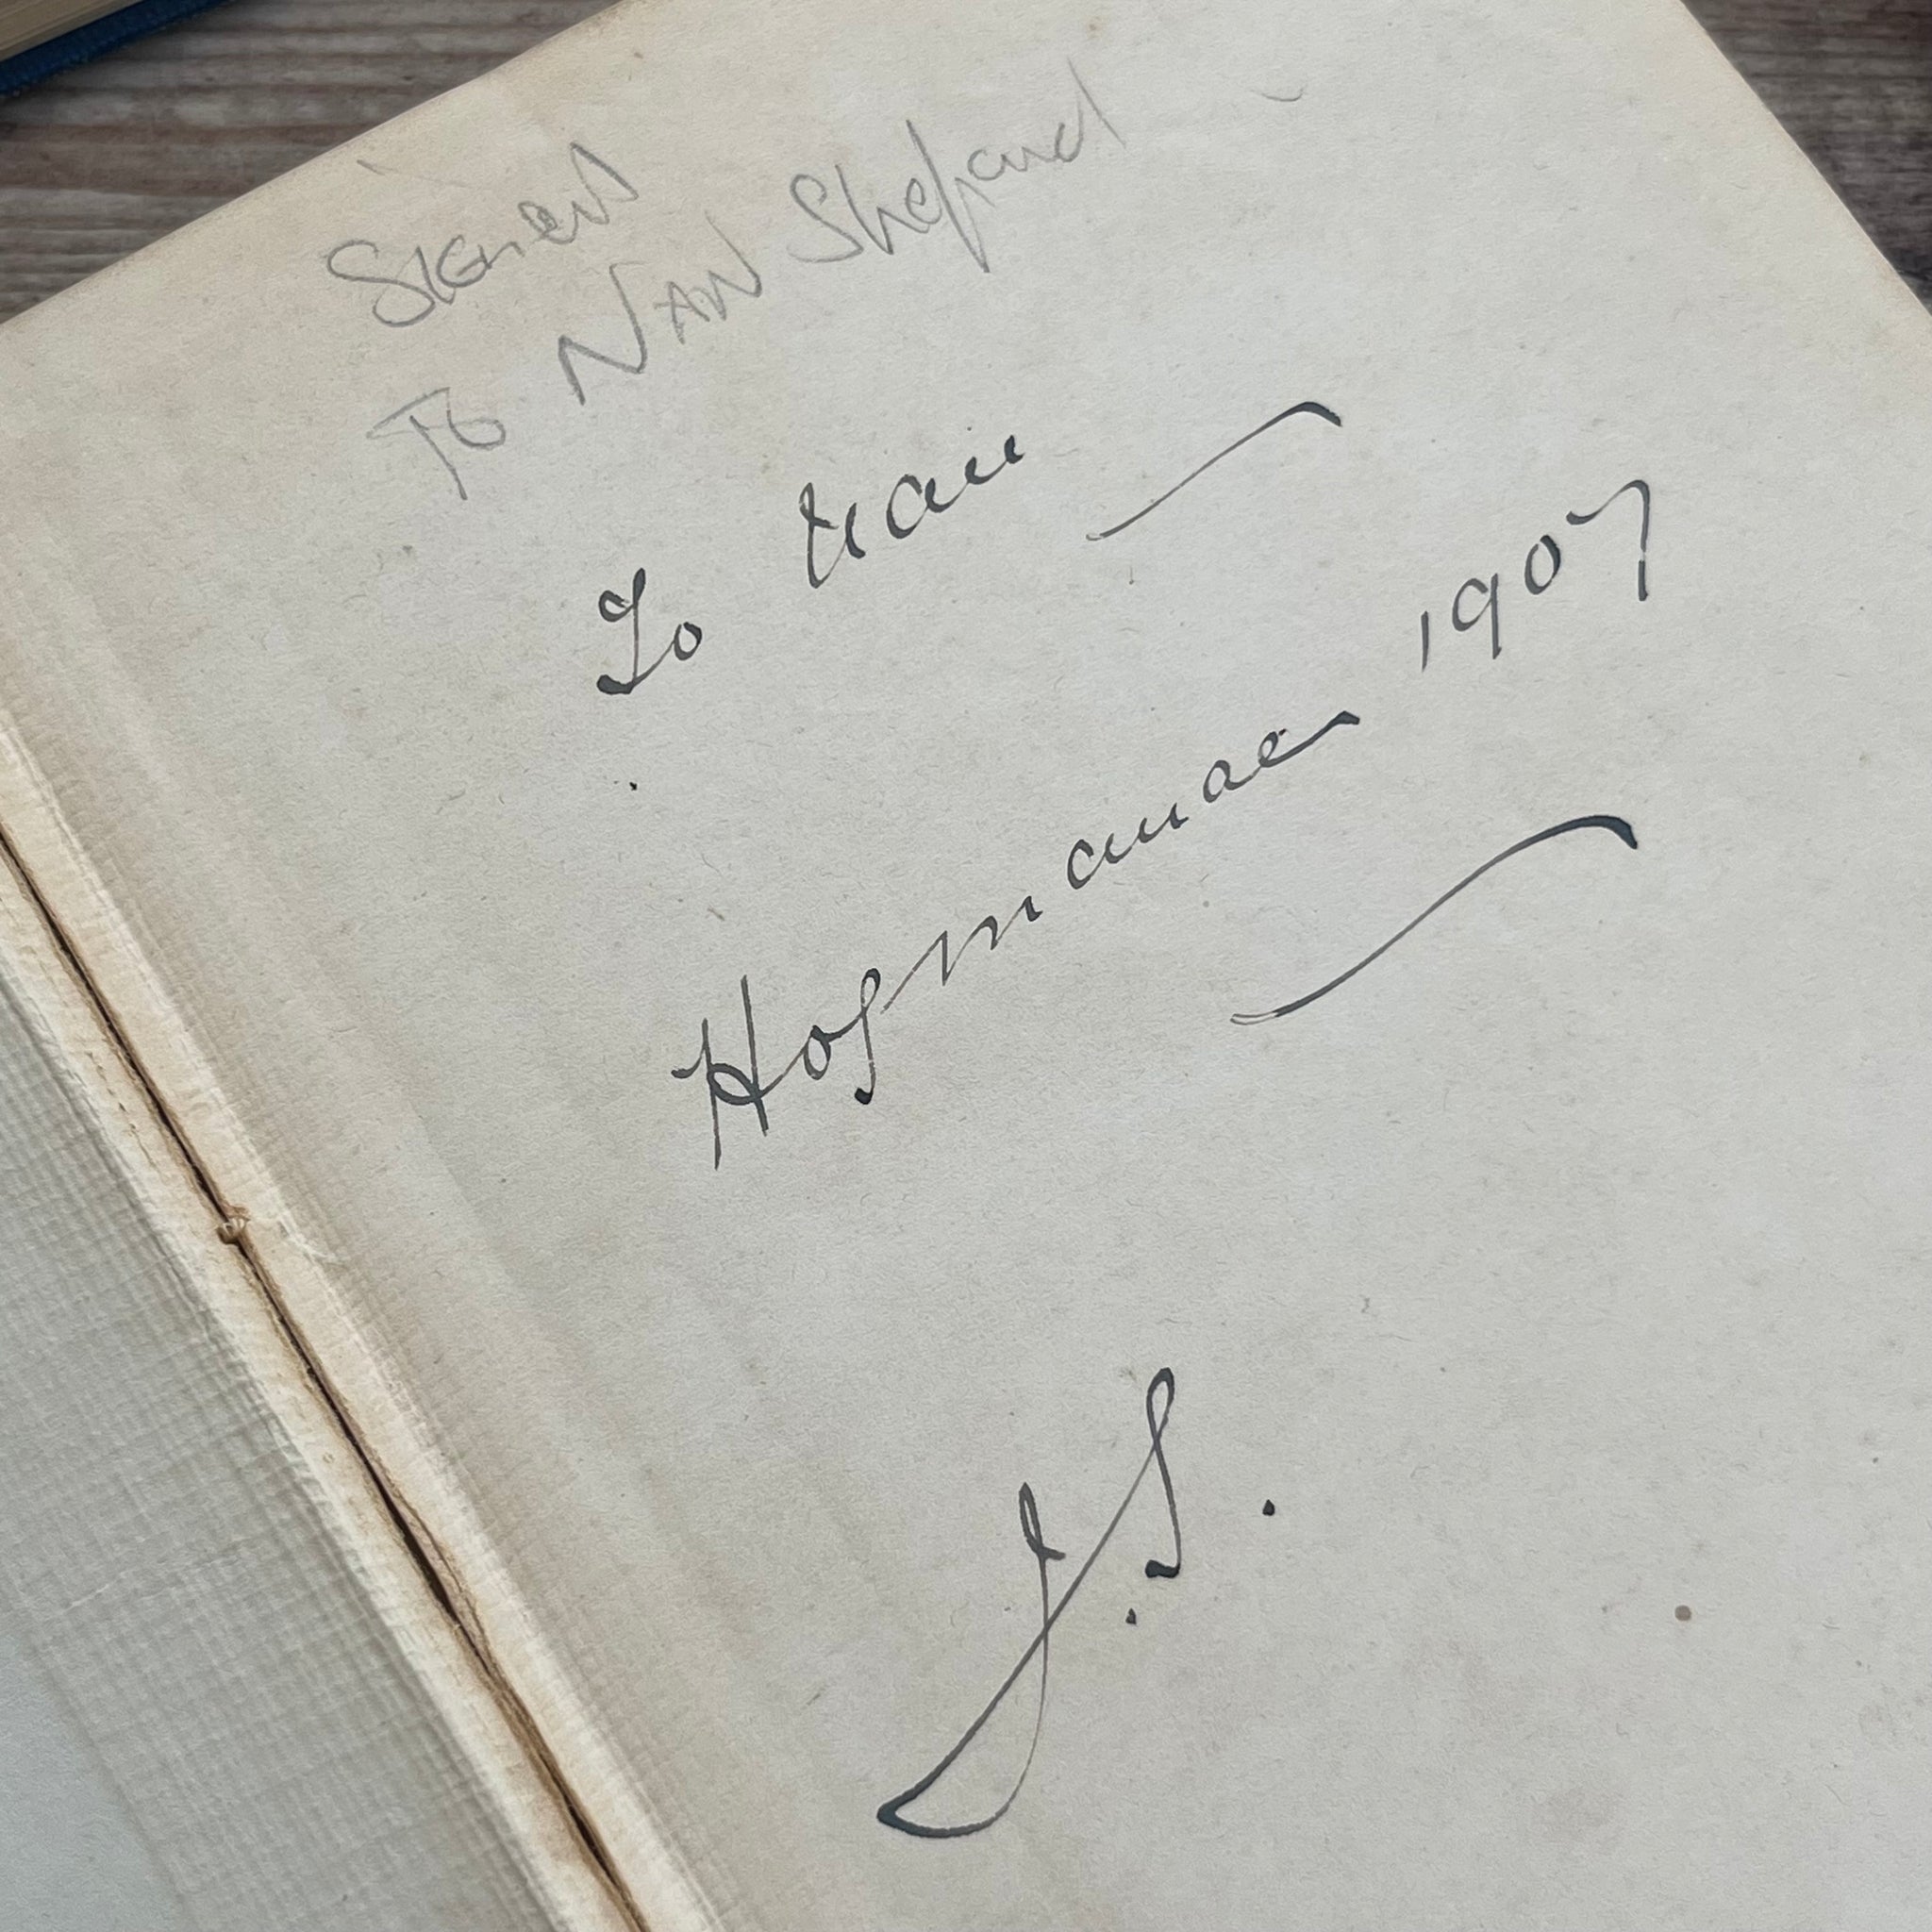 Signed
To NAN Shepard
To Nan
Hogmanae 1907
J.S.